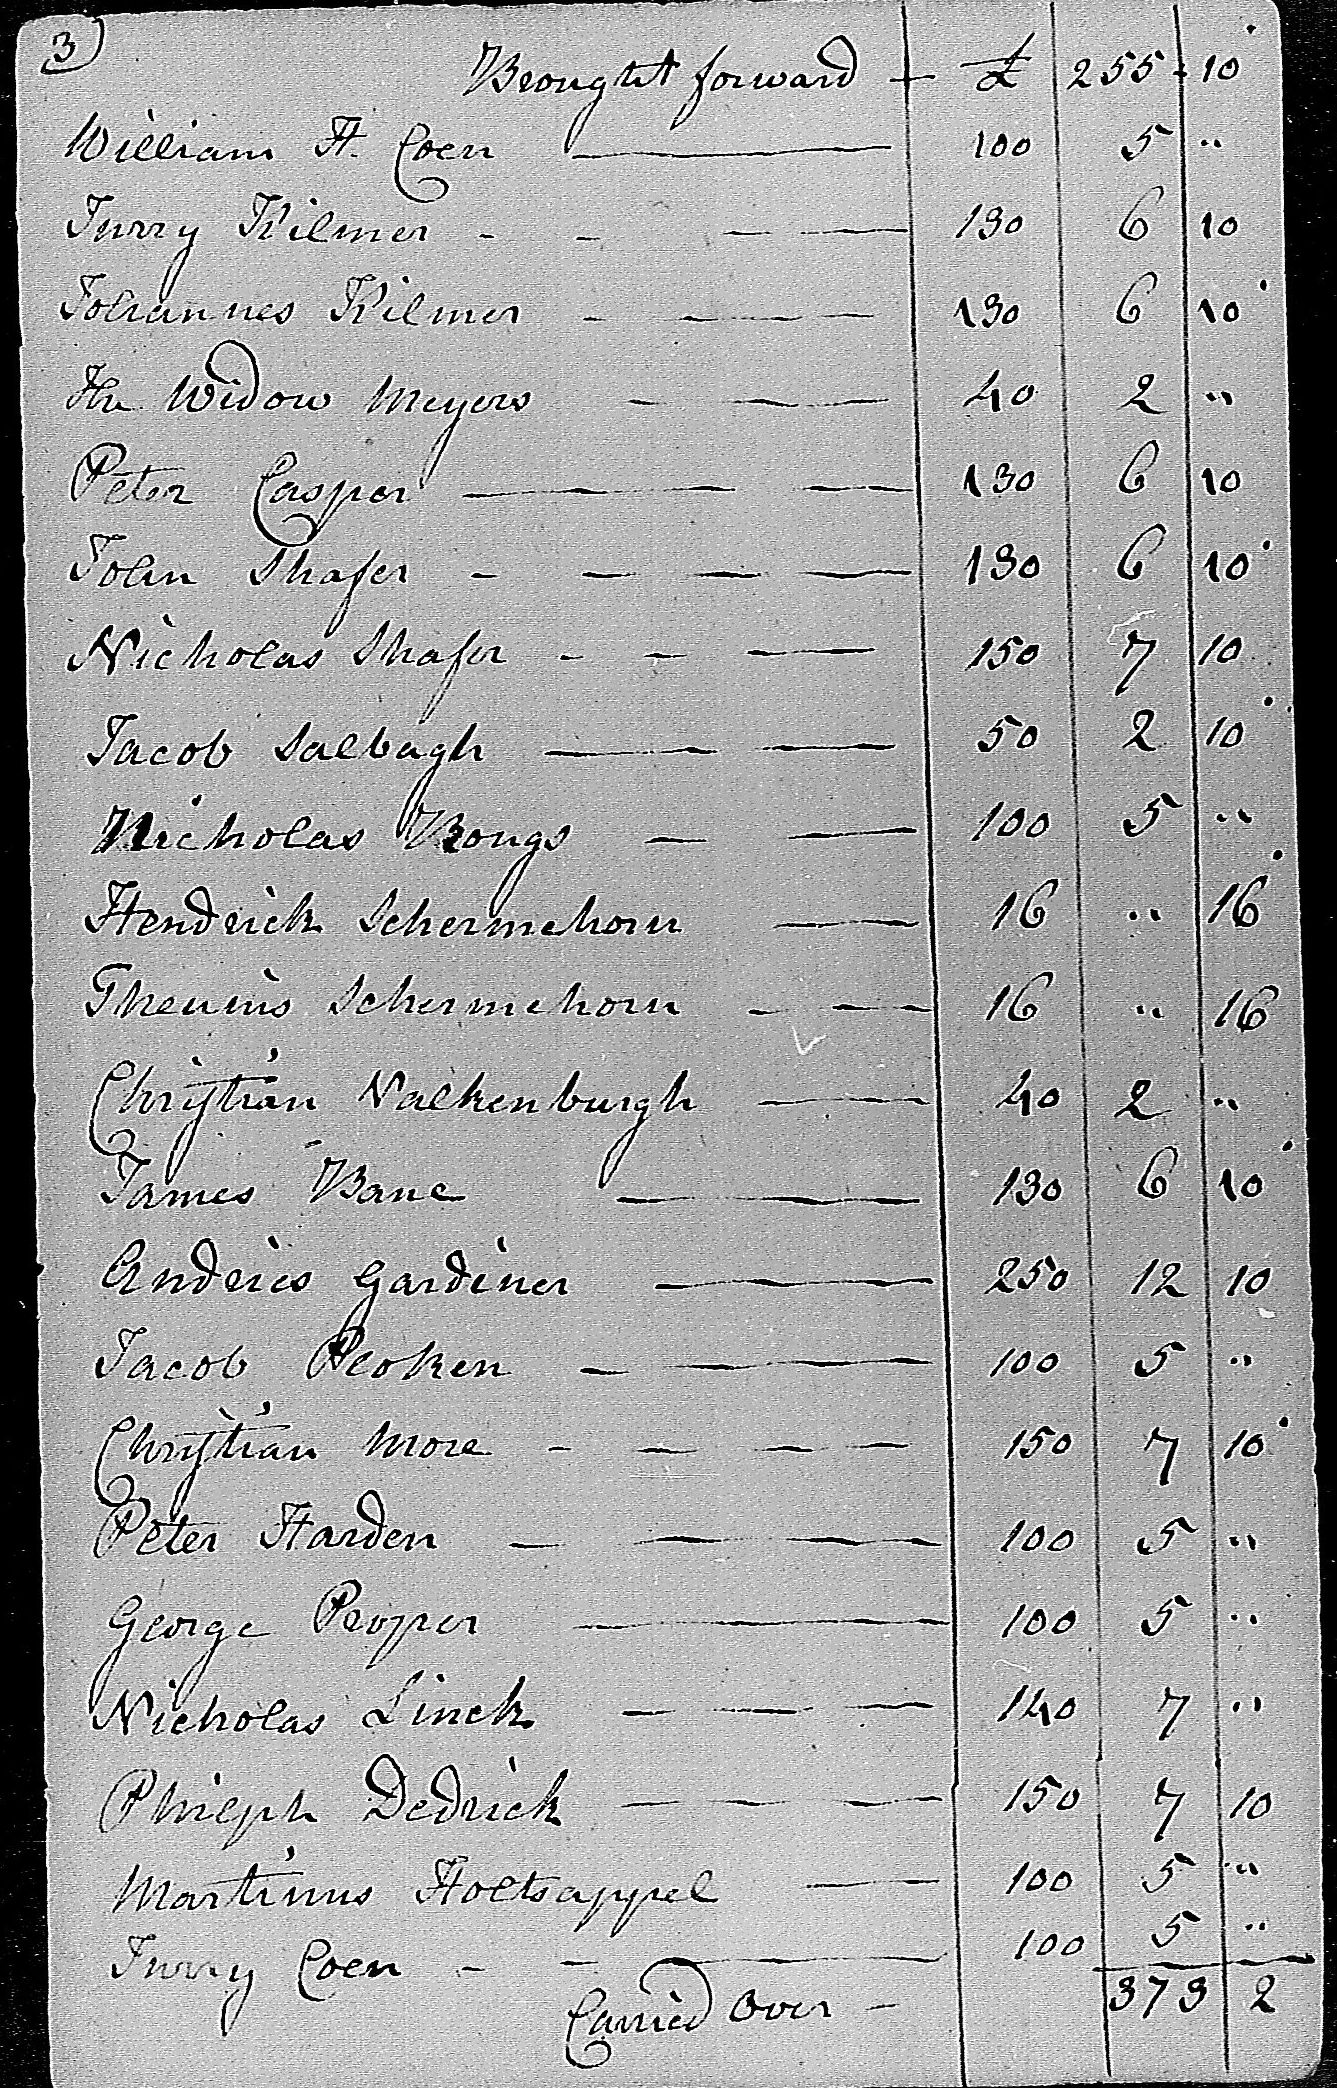 3)
Brought forward £ 255 - 10
William H. Coen 100 5 "
Jurry Kilmer - - - 130 6 10
Johannes Kilmer - - - 130 6 10
The Widow Meyers - - - 40 2 "
Peter Casper 130 6 10
John Shafer - - - 130 6 10
Nicholas Shafer - - - 150 7 10
Jacob Salbagh 50 2 10
Nicholas Bongs 100 5 "
Hendrick Schermehorn 16 " 16
Theunis Schermehorn 16 " 16
Christian Valkenburgh 40 2 "
James Bane 130 6 10
Andries Gardiner 250 12 10
Jacob 100 5 "
Christian More - - - 150 7 10
Peter Harden - - - 100 5 "
George Proper 100 5 "
Nicholas Linck - - - 140 7 "
Philiph Dedrick 150 7 10
Martinus Holtsappel 100 5 "
Jurry Coen - - 100 5 "
Carried Over - 373 2